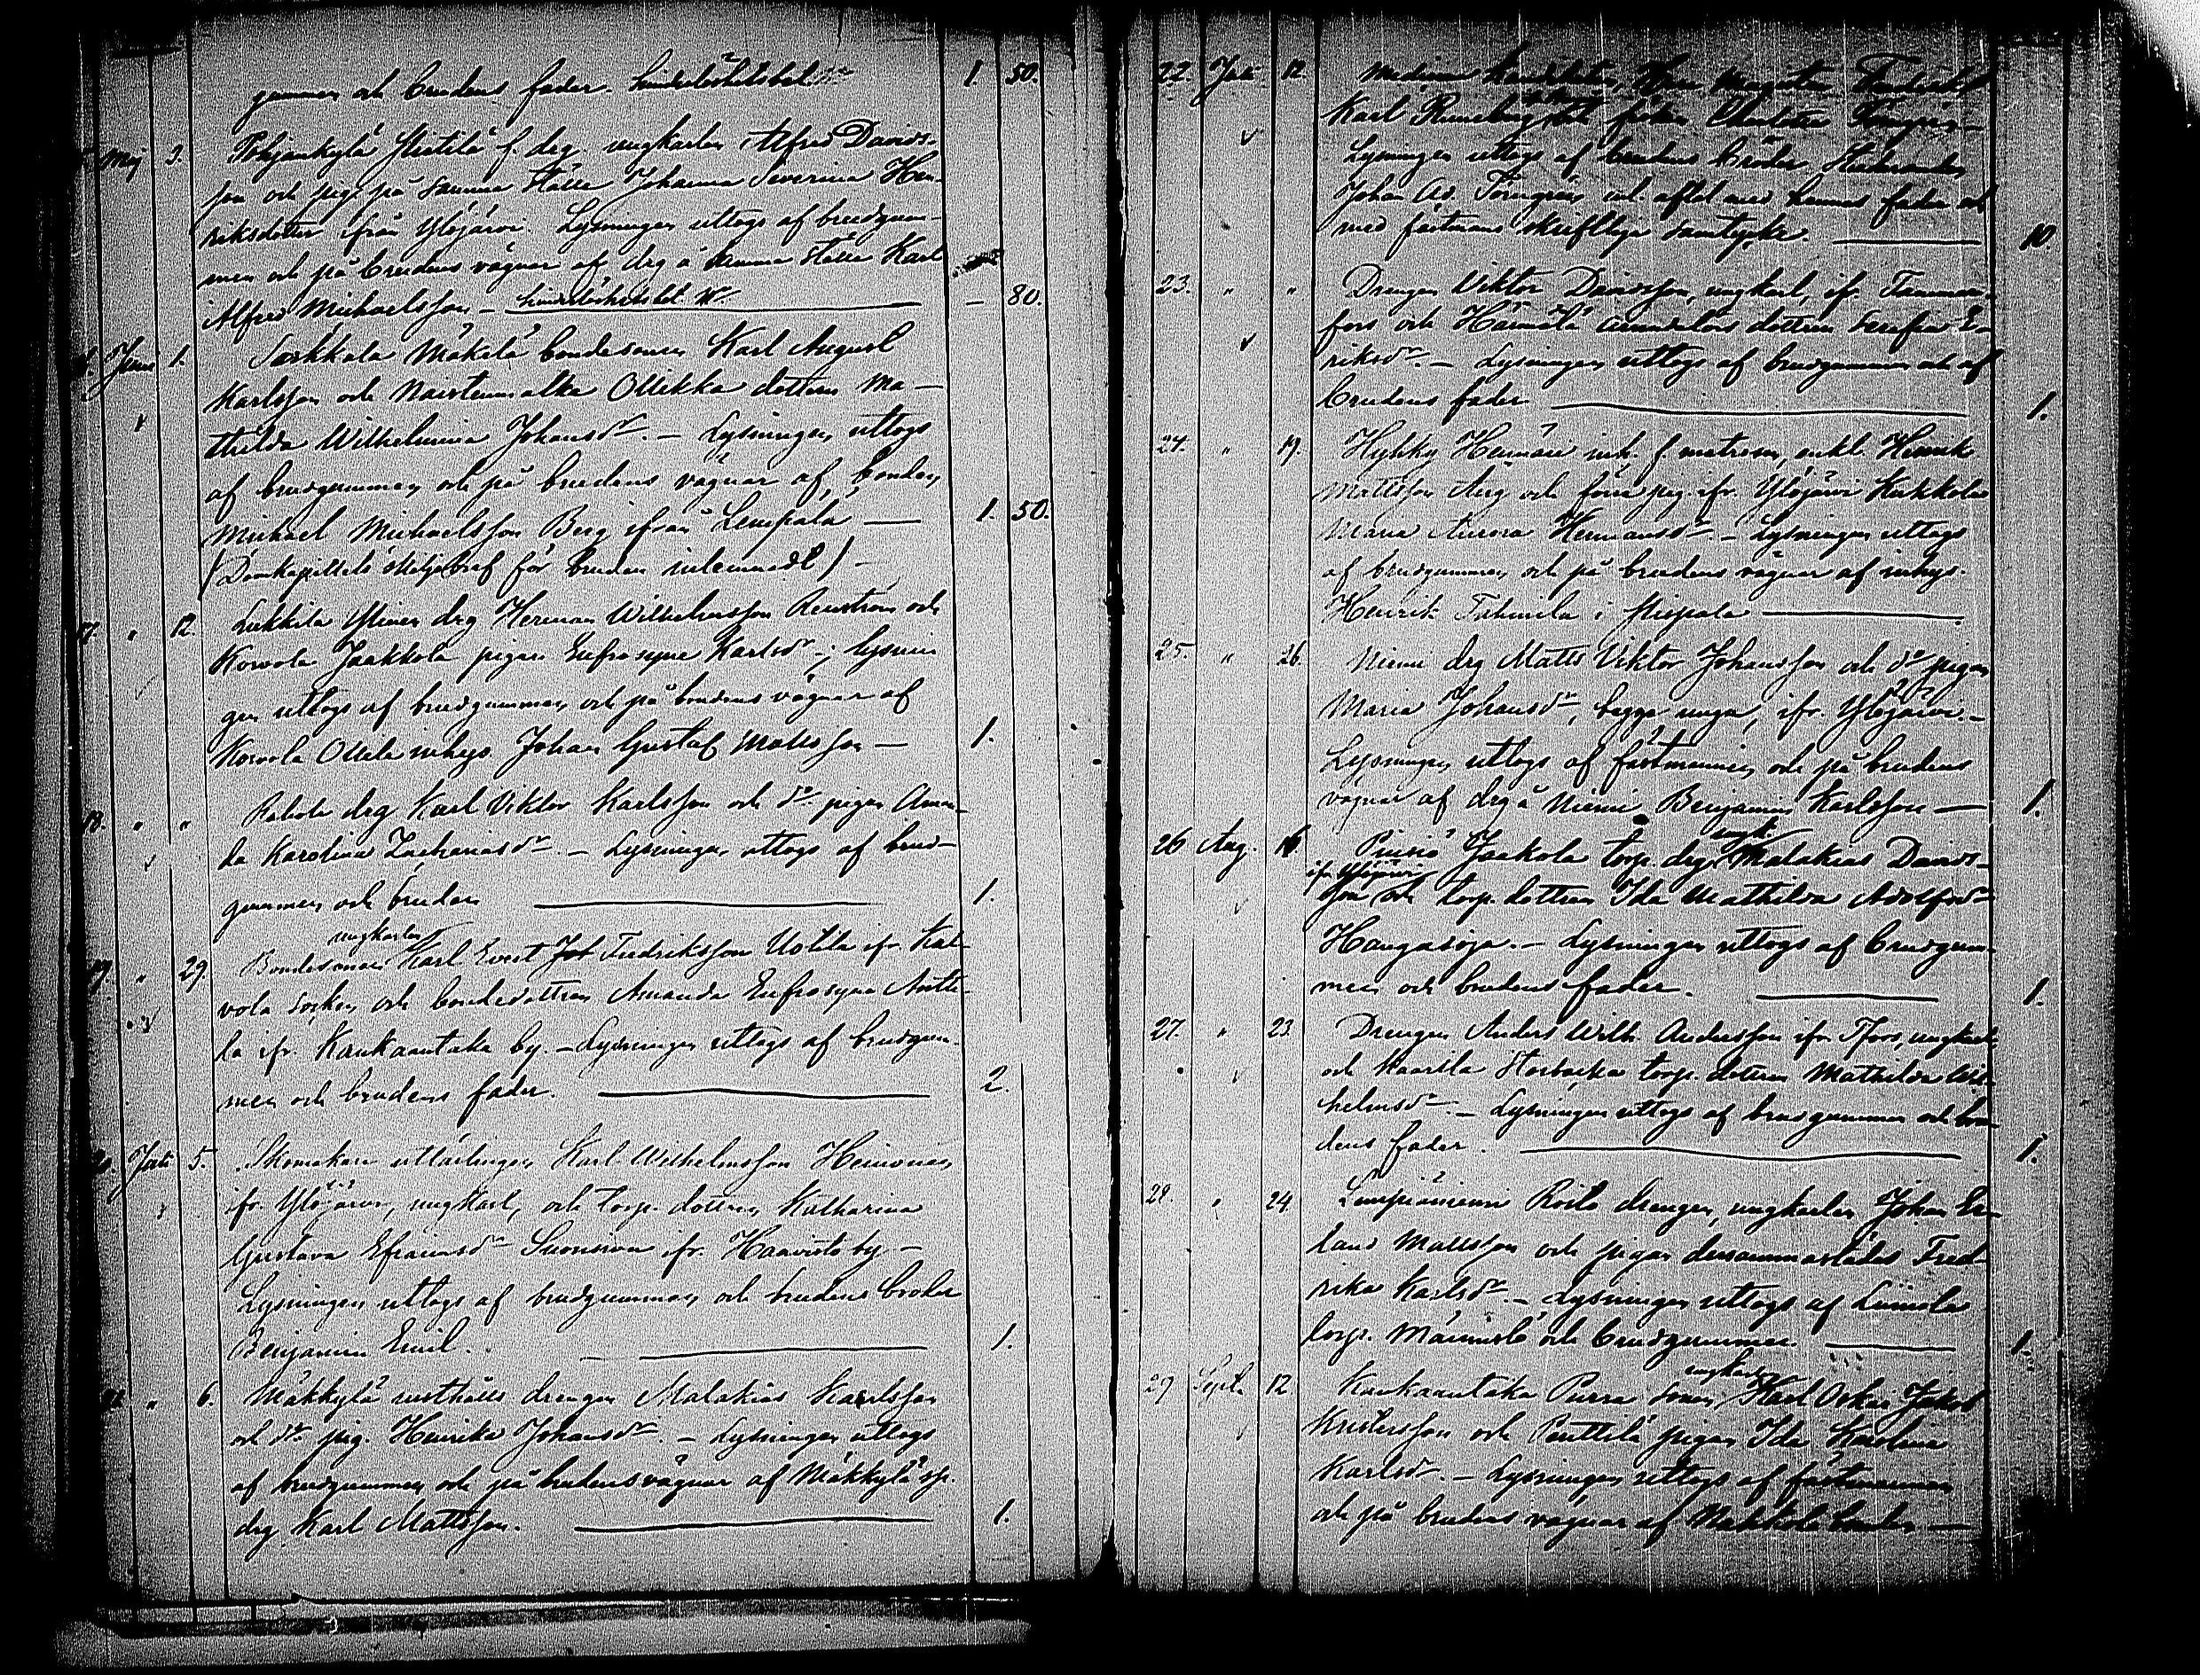 gummen och brudens fader. hinderlöshetsbet. 1. 50.
Maj 3. Pohjankylä f. drg. ungkarlen Alfred Davids-
son och pig. på samma ställe Johanna Severina Hen-
riksdotter ifrån Ylöjärvi. Lysningen uttogs af brudgum-
men och på brudens vägnar af drg å samma ställe Karl
Alfred Michaelsson – hinderlöshetsbet. – 80.
Juni 1. Sarkkola Mäkelä bondesonen Karl August
Karlsson och Naistenmatka Ollikka dottren Ma-
thilda Wilhelmina Johansdr. – Lysningen uttogs
af brudgummen och på brudens vägnar af bonden
Michael Michaelsson Berg ifrån Lempälä — 1. 50.
(Domkapitlets skiljobref för bruden inlemnadt) –
17. " 12. Lukkila drg Herman Wilhelmsson Renström och
Korvola Jaakkola pigan Eufrosyne Karlsdr –; lysnin
gen uttogs af brudgummen och på brudens vägnar af
Korvola Ollila inhys Johan Gustaf Mattsson — 1.
18. " " Pabola drg Karl Viktor Karlsson och do pigan Aman-
da Karolina Zachariasdr – Lysningen uttogs af brud-
gummen och bruden 1.
ungkarlen
19. " 29. Bondesonen Karl Evert Fredriksson Uotila ifr. Kal-
vola socken och bondedottren Amanda Eufrosyne Antti-
la ifr. Kankaantaka by. – Lysningen uttogs af brudgum-
men och brudens fader. 2.
20. Juli 5. Skomakare utlärlingen Karl Wilhelmsson Heinonen
ifr. Ylöjärvi, ungkarl, och torp. dottren Katharina
Gustava Efraimsdr Suonsivu ifr. Haavisto by –
Lysningen uttogs af brudgummen och brudens broder
Benjamin Emil. 1.
" 6. Mäkkylä rusthålls drengen Malakias Karlsson
och do pig. Henrika Johansdr. – Lysningen uttogs
af brudgummen och på brudens vägnar af Mäkkylä
drg Karl Mattsson. 1.
22. Juli 12. Medicine Kandidaten, Herr Magister Fredrik
Karl Runeberg och fröken Törngren –
Lysningen uttogs af brudens broder Studeranden
Johan Ad. Törngren enl. aftal med hennes fader och
med fästmans skriftliga samtycke. 10
23. " " Drengen Viktor Davidsson, ungkarl, ifr. Tammer-
fors och Hämälä dottren Serafia E-
riksdr. – Lysningen uttogs af brudgummen och af
brudens fader 1.
24. " 19. Heinäre inh. f. matrosen, enkl. Henrik
Mattsson Aug och förra pig. ifr. Ylöjärvi Kukkola
Maria Aurora Hermansdr. – Lysningen uttogs
af brudgummen och på brudens vägnar af inhys.
Henrik Tahmela i
25. " 26. Niemi drg Matts Viktor Johansson och do pigan
Maria Johansdr, begge unga, ifr. Ylöjärvi –
Lysningen uttogs af fästmannen och på brudens
vägnar af drg å Niemi Benjamin Karlsson — 1.
ungk.
26 Aug. 16. Pinsiö Jaakola torp. drg Malakias Davids-
ifr. Ylöjärvi
son och torp. dottren Ida Mathilda Adolfsdr
Hangasoja. – Lysningen uttogs af brudgum-
men och brudens fader. 1.
27. " 23. Drengen Anders Wilh. Andersson ifr. Tfors, ungkarl
och Kaarila torp. dottren Mathilda Wil-
helmsdr – Lysningen uttogs af brudgummen och bru-
dens fader. 1.
28. " 24. Lempiäniemi Rosto drengen, ungkarlen Johan Er-
land Mattsson och pigan densammastädes Fred-
rika Karlsdr. – Lysningen uttogs af
torp. Männistö och brudgummen. 1.
ungkarlen
29 Sept. 12 Kankaantaka Purra sonen Karl Oskar Jakob
Kristersson och Penttilä pigan Ida Karolina
Karlsdr. – Lysningen uttogs af fästmannen
och på brudens vägnar af bonden —